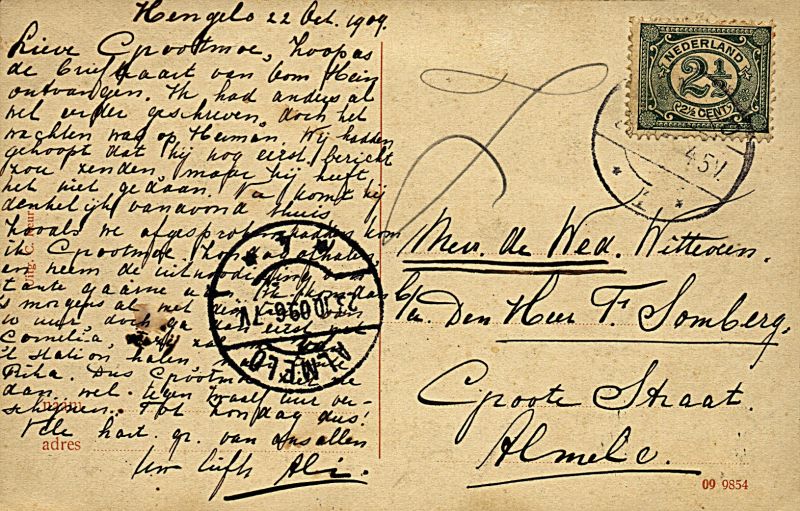 Hengelo 22 Oct. 1909.
Lieve Grootmoe, Hoop as
de briefkaart van oom Hein
ontvangen. Ik had anders al
wel eerder geschreven, doch het
wachten was op Herman. Wij hadden
gehoopt dat hij nog eerst bericht
zou zenden, maar hij heeft
het niet gedaan. Nu komt hij
denkelijk vanavond thuis.
Zooals we afgesproken hadden kom
ik Grootmoe Zondag afhalen
en neem de uitnoodiging van
tante gaarne aan. Ik kom dan
's morgens al met den
uur, doch ga dan eerst met
Cornelia,
't station halen,
Rika. Dus Grootmoe
dan wel tegen twaalf uur ver-
schijnen. Tot Zondag dus!
Vele hart. gr. van ons allen
Uw liefh. Ali.
naam
adres
Uitg. C.
NEDERLAND
2½
2½ CENT
4-5V
ALMELO
23.10.09.6-7V
Mevr. de Wed. Witteveen.
p/a. Den Heer F. Somberg,
Groote Straat.
Almelo.
09 9854